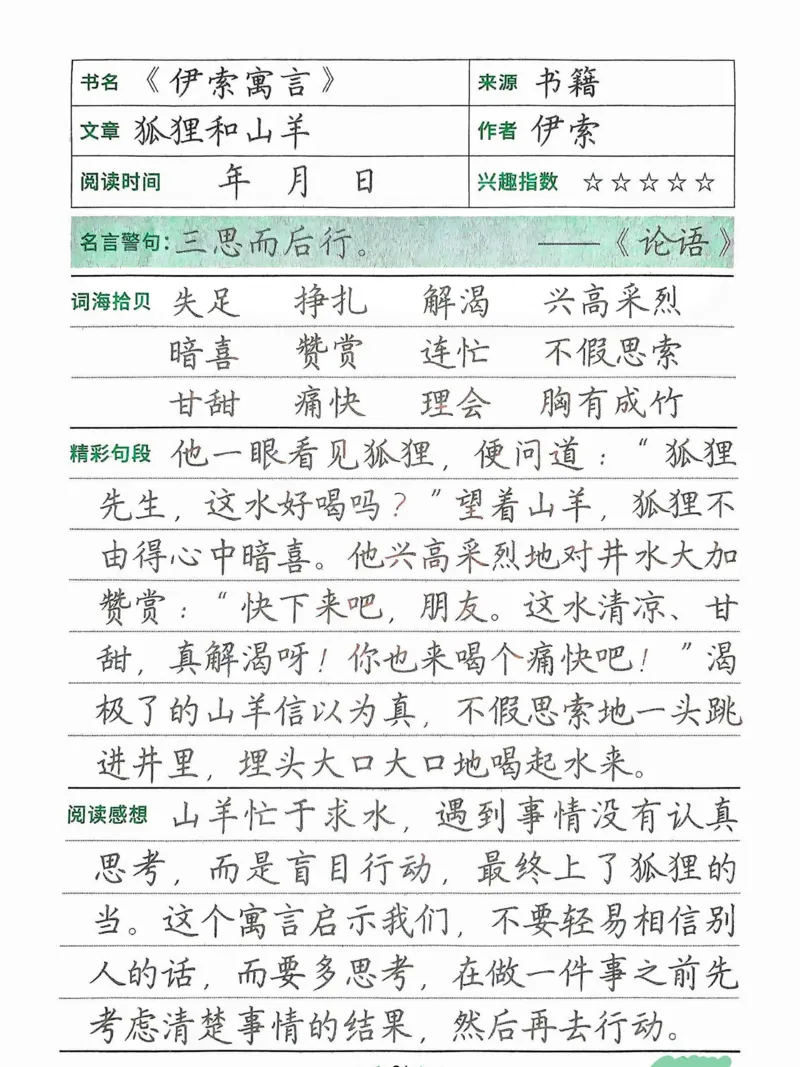 书名 《伊索寓言》 来源 书籍
文章 狐狸和山羊 作者 伊索
阅读时间 年 月 日 兴趣指数 ☆☆☆☆☆
名言警句：三思而后行。 ——《论语》
词海拾贝 失足 挣扎 解渴 兴高采烈
暗喜 赞赏 连忙 不假思索
甘甜 痛快 理会 胸有成竹
精彩句段 他一眼看见狐狸，便问道：“狐狸
先生，这水好喝吗？”望着山羊，狐狸不
由得心中暗喜。他兴高采烈地对井水大加
赞赏：“快下来吧，朋友。这水清凉、甘
甜，真解渴呀！你也来喝个痛快吧！”渴
极了的山羊信以为真，不假思索地一头跳
进井里，埋头大口大口地喝起水来。
阅读感想 山羊忙于求水，遇到事情没有认真
思考，而是盲目行动，最终上了狐狸的
当。这个寓言启示我们，不要轻易相信别
人的话，而要多思考，在做一件事之前先
考虑清楚事情的结果，然后再去行动。